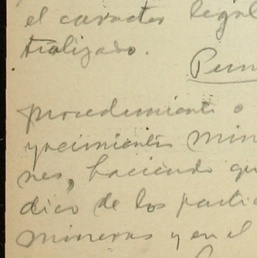 el caracter legal
tralizado.
procedimiento o
yacimientos min
nes, haciendo qu
dico de los parti
mineras y en el